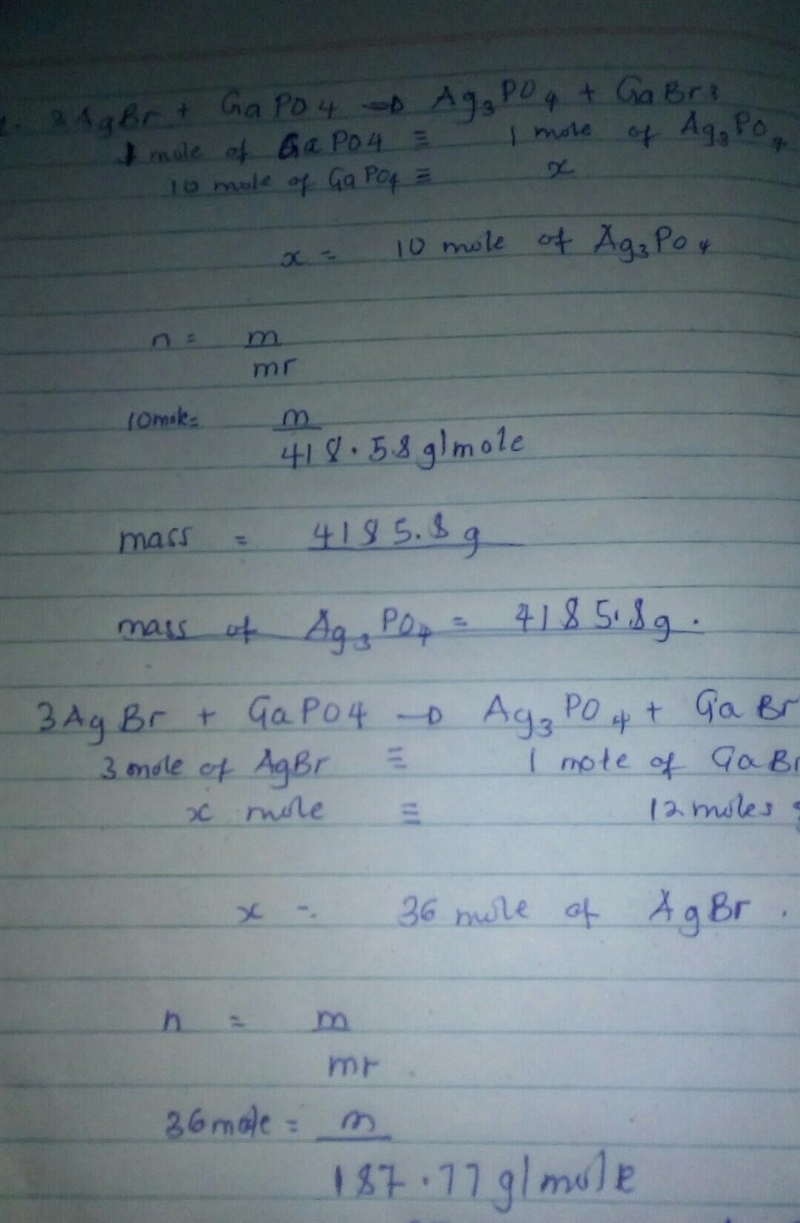 3AgBr + GaPO4 → Ag3PO4 + GaBr3
1 mole of GaPO4 ≡ 1 mole of Ag3PO4
10 mole of GaPO4 ≡ x
x = 10 mole of Ag3PO4
n = m
mr
10mole = m
418.58 g/mole
mass = 4185.8 g
mass of Ag3PO4 = 4185.8g.
3AgBr + GaPO4 → Ag3PO4 + GaBr
3 mole of AgBr ≡ 1 mole of GaBr
x mole ≡ 12 moles
x = 36 mole of AgBr.
n = m
mr
36 mole = m
187.77 g/mole